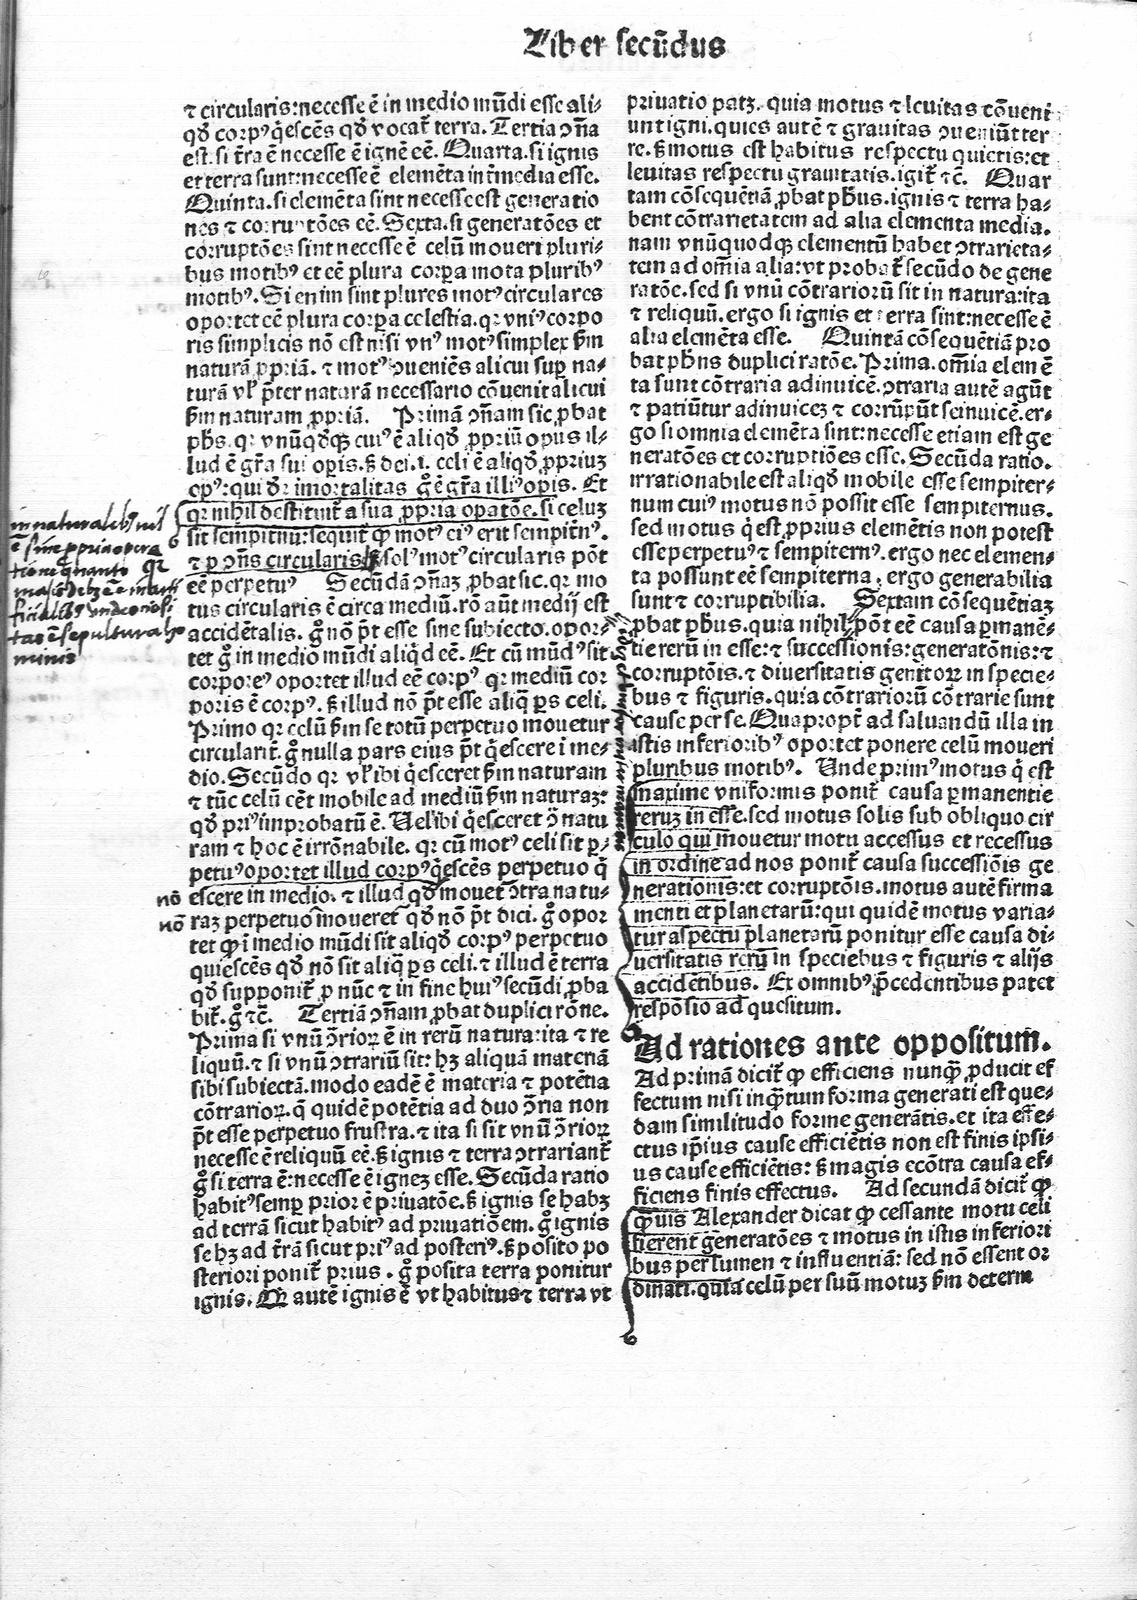 Liber secūdus
⁊ circularis:necesse ē in medio mūdi esse ali-
qḋ corpꝰ q̇escēs qḋ vocat̄ terra. Tertia ↄ̄na
est.si t̄ra ē necesse ē ignē eē. Quarta.si ignis
et terra sunt:necesse ē elemēta int̄media esse.
Quinta.si elemēta sint necesse est generatio
nes ⁊ corruptōes eē. Sexta.si generatōes et
corruptōes sint necesse ē celū moueri pluri-
bus motibꝰ et eē plura corꝑa mota pluribꝰ
motibꝰ. Si enim sint plures motꝰ circulares
oportet eē plura corꝑa celestia.qꝛ vniꝰ corpo
ris simplicis nō est nisi vnꝰ motꝰ simplex ẜm
naturā ꝓpriā. ⁊ motꝰ ↄueniēs alicui supꝛ na-
turā vl̓ p̄ter naturā necessario cōuenit alicui
ẜm naturam ꝓpriā. Primā ↄ̄nam sic ꝓbat
ph̄s.qꝛ vnūqḋqꝫ cuiꝰ ē aliqḋ ꝓpriū opus il-
lud ē gr̄a sui oꝑis.ẜ dei.i. celi ē aliqḋ ꝓpriuꝫ
opꝰ:qui dr̄ imortalitas gͦ ē gr̄a illiꝰ oꝑis. Et
qꝛ nihil destituit̄ a sua ꝓpria oꝑatōe.si celuꝫ
sit sempitnū:sequit̄ ꝙ motꝰ eiꝰ erit sempit̄nꝰ.
⁊ ꝑ ↄ̄ns circularis solꝰ motꝰ circularis pōt
eē perpetuꝰ Secūdā ↄ̄naꝫ ꝓbat sic.qꝛ mo
tus circularis ē circa mediū.rō aūt medij est
accidētalis. gͦ nō p̄t esse sine subiecto.opor-
tet gͦ in medio mūdi aliqḋ eē. Et cū mūdꝰ sit
corporeꝰ oportet illud eē corpꝰ qꝛ mediū cor
poris ē corpꝰ. ẜ illud nō p̄t esse aliq̄ ꝑs celi.
Primo qꝛ celū ẜm se totū perpetuo mouetur
circularit̄. gͦ nulla pars eius p̄t q̇escere ī me-
dio. Secūdo qꝛ vl̓ ibi q̇esceret ẜm naturam
⁊ tūc celū eēt mobile ad mediū ẜm naturaꝫ:
qḋ priꝰ improbatū ē. Uel ibi q̇esceret ↄ̄ natu
ram ⁊ hoc ē irrōnabile. qꝛ cū motꝰ celi sit ꝑ-
petuꝰ oportet illud corpꝰ q̇escēs perpetuo q̇
escere in medio. ⁊ illud qḋ mouet̄ ↄtra natu-
raꝫ perpetuo moueret̄ qḋ nō p̄t dici. gͦ opor
tet ꝙ ī medio mūdi sit aliqḋ corpꝰ perpetuo
quiescēs qḋ nō sit aliq̄ ꝑs celi. ⁊ illud ē terra
qḋ supponit̄ ꝑ nūc ⁊ in fine huiꝰ secūdi ꝓba
bit̄. gͦ ⁊c̄. Tertiā ↄ̄nam ꝓbat duplici rōne.
Prima si vnū ↄ̄rioꝝ ē in rerū natura:ita ⁊ re
liquū. ⁊ si vnū ↄtrariū sit: hꝫ aliquā materiā
sibi subiectā.modo eadē ē materia ⁊ potētia
cōtrarioꝝ. q̄ quidē potētia ad duo ↄ̄ria non
p̄t esse perpetuo frustra. ⁊ ita si sit vnū ↄ̄rioꝝ
necesse ē reliquū eē.ẜ ignis ⁊ terra ↄtrariant̄
gͦ si terra ē:necesse ē igneꝫ esse. Secūda ratio
habitꝰ semꝑ prior ē priuatōe.ẜ ignis se habꝫ
ad terrā sicut habitꝰ ad priuatiōem. gͦ ignis
se hꝫ ad t̄rā sicut priꝰ ad posteriꝰ.ẜ posito po
steriori ponit̄ prius. gͦ posita terra ponitur
ignis. Qꝫ autē ignis ē vt habitus ⁊ terra vt
in naturalibꝰ nil
ē sine ꝓpria opera
tione quanto qꝛ
tas ē sepultura ho
minis
nō
nō
priuatio patꝫ. quia motus ⁊ leuitas cōueni
unt igni.quies autē ⁊ grauitas ↄueniūt ter
re.ẜ motus est habitus respectu quietis:et
leuitas respectu grauitatis.igit̄ ⁊c̄. Quar
tam cōsequētiā ꝓbat ph̄us. ignis ⁊ terra ha-
bent cōtrarietatem ad alia elementa media.
nam vnūquodqꝫ elementū habet ↄtrarieta-
tem ad om̄ia alia:vt probat̄ secūdo de gene
ratōe.sed si vnū cōtrariorū sit in natura:ita
⁊ reliquū.ergo si ignis et terra sint:necesse ē
alia elemēta esse. Quintā cōsequētiā pro
bat ph̄us duplici ratōe. Prima.om̄ia elemē
ta sunt cōtraria adinuicē.ↄtraria autē agūt
⁊ patiūtur adinuicez ⁊ corrūpūt seinuicē.er-
go si omnia elemēta sint:necesse etiam est ge
neratōes et corruptiōes esse. Secūda ratio.
irrationabile est aliqḋ mobile esse sempiter-
num cuiꝰ motus nō possit esse sempiternus.
sed motus q̇ est ꝓprius elemētis non potest
esse perpetuꝰ ⁊ sempiternꝰ.ergo nec elemen-
ta possunt eē sempiterna. ergo generabilia
sunt ⁊ corruptibilia. Sextam cōsequētiaꝫ
ꝓbat ph̄us.quia nihil pōt eē causa ꝑmanē-
tie rerū in esse:⁊ successionis:generatōnis:⁊
corruptōis.⁊ diuersitatis genitoꝝ in specie-
bus ⁊ figuris.quia cōtrariorū cōtrarie sunt
cause per se. Quapropt̄ ad saluandū illa in
istis inferioribꝰ oportet ponere celū moueri
pluribus motibꝰ. Unde primꝰ motus q̇ est
maxime vniformis ponit̄ causa ꝑmanentie
reruꝫ in esse.sed motus solis sub obliquo cir
culo qui mouetur motu accessus et recessus
in ordine ad nos ponit̄ causa successiōis ge
nerationis:et corruptōis.motus autē firma
menti et planetarū:qui quidē motus varia-
tur aspectu planetarū ponitur esse causa di-
uersitatis rerū in speciebus ⁊ figuris ⁊ alijs
accidētibus. Ex omnibꝰ p̄cedentibus patet
respōsio ad quesitum.
Ad rationes ante oppositum.
Ad primā dicit̄ ꝙ efficiens nunqꝫ ꝓducit ef
fectum nisi inqꝫtum forma generati est que-
dam similitudo forme generātis.et ita effe-
ctus ip̄ius cause efficiētis non est finis ipsi-
us cause efficiētis: ẜ magis ecōtra causa ef-
ficiens finis effectus. Ad secundā dicit̄ ꝙ
qꝫuis Alexander dicat ꝙ cessante motu celi
fierent generatōes ⁊ motus in istis inferiori
bus per lumen ⁊ influentiā: sed nō essent or
dinati.quia celū per suū motuꝫ ẜm determ